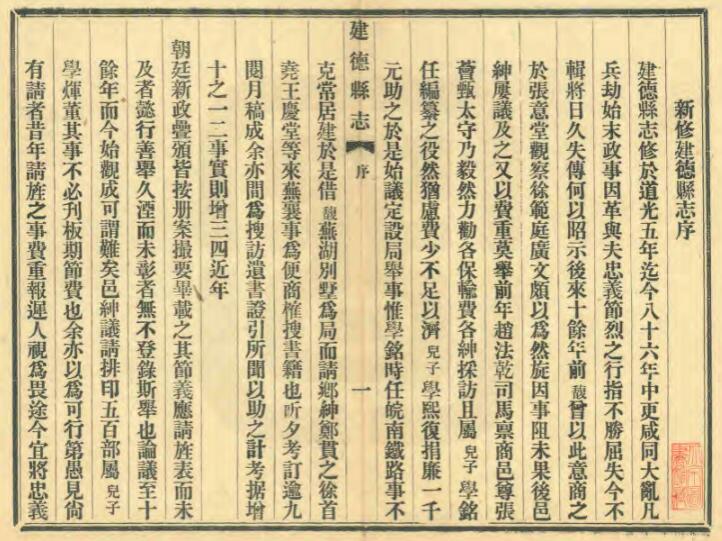 新修建德縣志序
建德縣志修於道光五年迄今八十六年中更咸同大亂凡
兵劫始末政事因革與夫忠義節烈之行指不勝屈失今不
輯將日久失傳何以昭示後來十餘年前馥曾以此意商之
於張意堂觀察徐範庭廣文頗以為然旋因事阻未果後邑
紳屢議及之又以費重莫舉前年趙法乾司馬稟商邑尊張
薈甄太守乃毅然力勸各保輸費各紳採訪且屬兒子學銘
任編纂之役然猶慮費少不足以濟兒子學熙復捐廉一千
元助之於是始議定設局舉事惟學銘時任皖南鐵路事不
建德縣志
序
一
克常居建於是借馥蕪湖別墅爲局而請鄉紳鄭貫之徐首
堯王慶堂等來蕪襄事爲便商榷搜書籍也昕夕考訂逾九
閱月稿成余亦間爲搜訪遺書證引所聞以助之計考据增
十之一二事實則增三四近年
朝廷新政疊頒皆按册案撮要畢載之其節義應請旌表而未
及者懿行善舉久湮而未彰者無不登錄斯舉也論議至十
餘年而今始觀成可謂難矣邑紳議請排印五百部屬兒子
學煇董其事不必刋板期節費也余亦以爲可行第愚見尙
有請者昔年請旌之事費重報遲人視爲畏途今宜將忠義